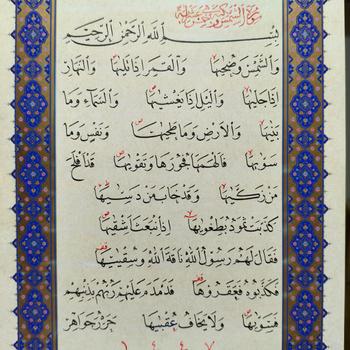 بِسْمِ اللهِ الرَّحْمٰنِ الرَّحِيمِ
وَالشَّمْسِ وَضُحٰيهَا وَالْقَمَرِ اِذَا تَلٰيهَا وَالنَّهَارِ
اِذَا جَلّٰيهَا وَالَّيْلِ اِذَا يَغْشٰيهَا وَالسَّمَاءِ وَمَا
بَنٰيهَا وَالْاَرْضِ وَمَا طَحٰيهَا وَنَفْسٍ وَمَا
سَوّٰيهَا فَاَلْهَمَهَا فُجُورَهَا وَتَقْوٰيهَا قَدْ اَفْلَحَ
مَنْ زَكّٰيهَا وَقَدْ خَابَ مَنْ دَسّٰيهَا
كَذَّبَتْ ثَمُودُ بِطَغْوٰيهَا اِذِ انْبَعَثَ اَشْقٰيهَا
فَقَالَ لَهُمْ رَسُولُ اللهِ نَاقَةَ اللهِ وَسُقْيٰيهَا
فَكَذَّبُوهُ فَعَقَرُوهَا فَدَمْدَمَ عَلَيْهِمْ رَبُّهُمْ بِذَنْبِهِمْ
فَسَوّٰيهَا وَلَا يَخَافُ عُقْبٰيهَا حرر جواهر